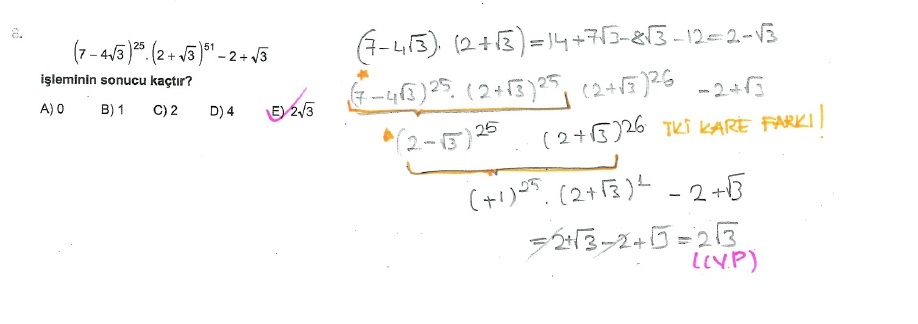 8.
(7 − 4√3)^25 . (2 + √3)^51 − 2 + √3
işleminin sonucu kaçtır?
A) 0 B) 1 C) 2 D) 4 E) 2√3
(7−4√3). (2+√3) = 14+7√3−8√3−12 = 2−√3
(7−4√3)^25 . (2+√3)^25 (2+√3)^26 −2+√3
(2−√3)^25 . (2+√3)^26 İKİ KARE FARKI!
(+1)^25 . (2+√3)^1 − 2+√3
= 2+√3−2+√3 = 2√3
(CVP)